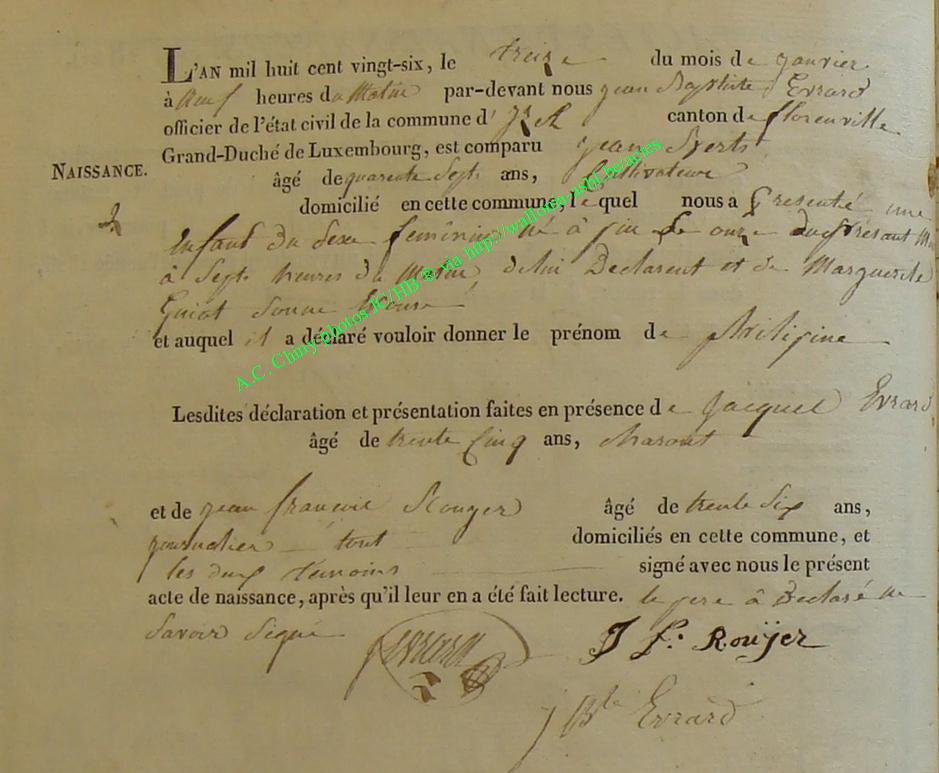 L'AN mil huit cent vingt-six, le treize du mois de janvier
à neuf heures du matin par-devant nous jean Baptiste Evrard
officier de l'état civil de la commune d' canton de florenville
Grand-Duché de Luxembourg, est comparu jean
NAISSANCE.
âgé de quarente sept ans, Cultivateur
domicilié en cette commune, le quel nous a Presenté une
Enfant du Sexe feminin né à jm Le onze du presant
à Sept heures du Matin delui Declarent et de Marguerite
Guiot Sonne Epouse
et auquel il a déclaré vouloir donner le prénom de philipine
Lesdites déclaration et présentation faites en présence de Jacque Evrard
âgé de trente Cinq ans,
et de jean francois Rouyer âgé de trente Six ans,
journalier tout domiciliés en cette commune, et
les deux temoins signé avec nous le présent
acte de naissance, après qu'il leur en a été fait lecture. le pere à Declaré ne
Savoir Signé
J F. Roüyer
J Bte Evrard
A.C. Chiny photos JC/HB ® via http://wallonia-asbl.be/actes